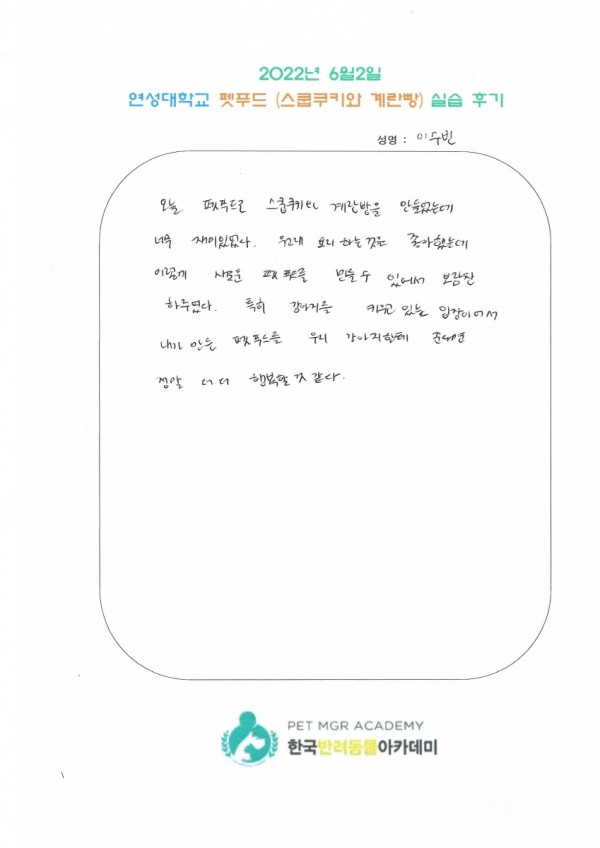 2022년 6월2일
연성대학교 펫푸드 (스쿱쿠키와 계란빵) 실습 후기
성명 : 이수빈
오늘 펫푸드로 스쿱쿠키와 계란빵을 만들었는데
너무 재미있었다. 요리 하는것은 좋아했는데
이렇게 새로운 펫푸드를 만들 수 있어서 보람찬
하루였다. 특히 강아지를 키우고 있는 입장이어서
내가 만든 펫푸드를 우리 강아지한테 준다면
정말 더 더 행복할 것 같다.
PET MGR ACADEMY
한국반려동물아카데미